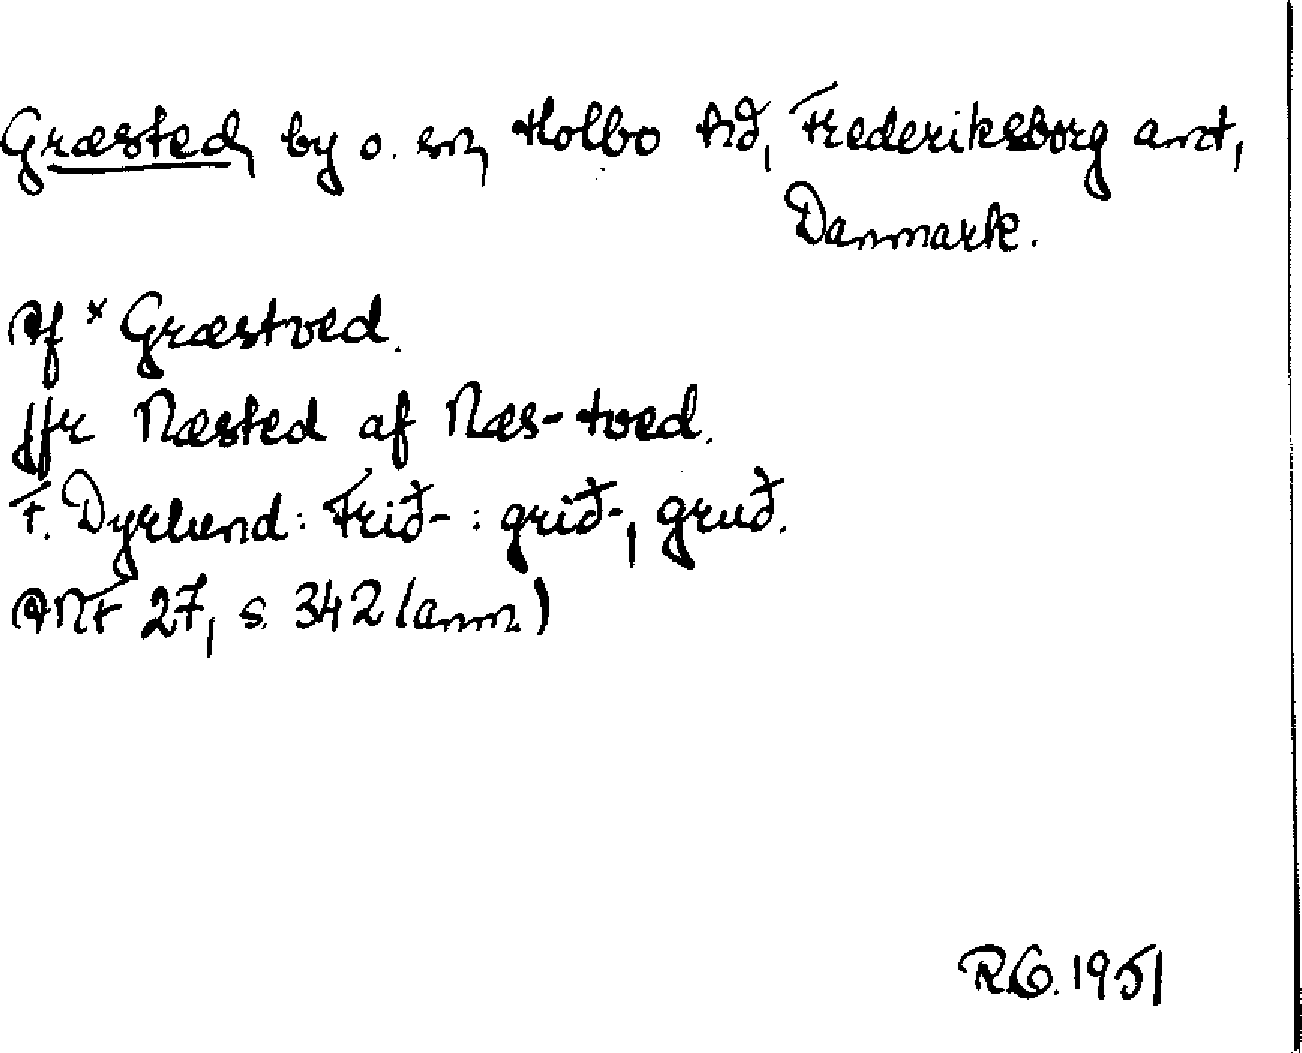 Græsted, by o. sn, Holbo hd, Frederiksborg amt,
Danmark.
Af *Græstved.
Jfr Næsted af Næs-tved.
F. Dyrlund: Frið-: grið-, gruð.
ANF 27, s. 342 (anm.)
R.G. 1951